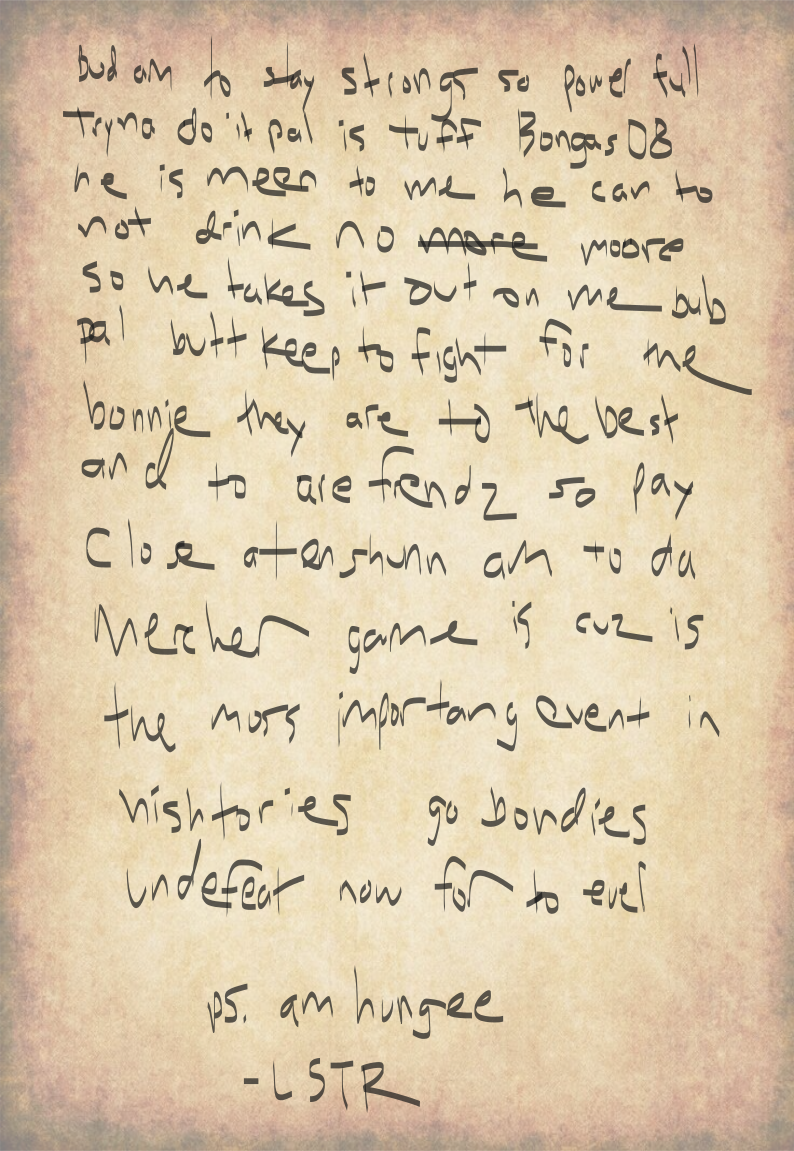 bud am to stay strongs so power full
Tryna do it pal is tuff Bongas DB
he is meen to me he can to
not drink no more moore
so he takes it out on me bub
pal butt keep to fight for the
bonnie they are to the best
and to are frendz so pay
Close atenshunn am to da
Mercher game is cuz is
the moss importang event in
hishtories go bondies
undefeat now for to ever
ps. am hungee
- LSTR